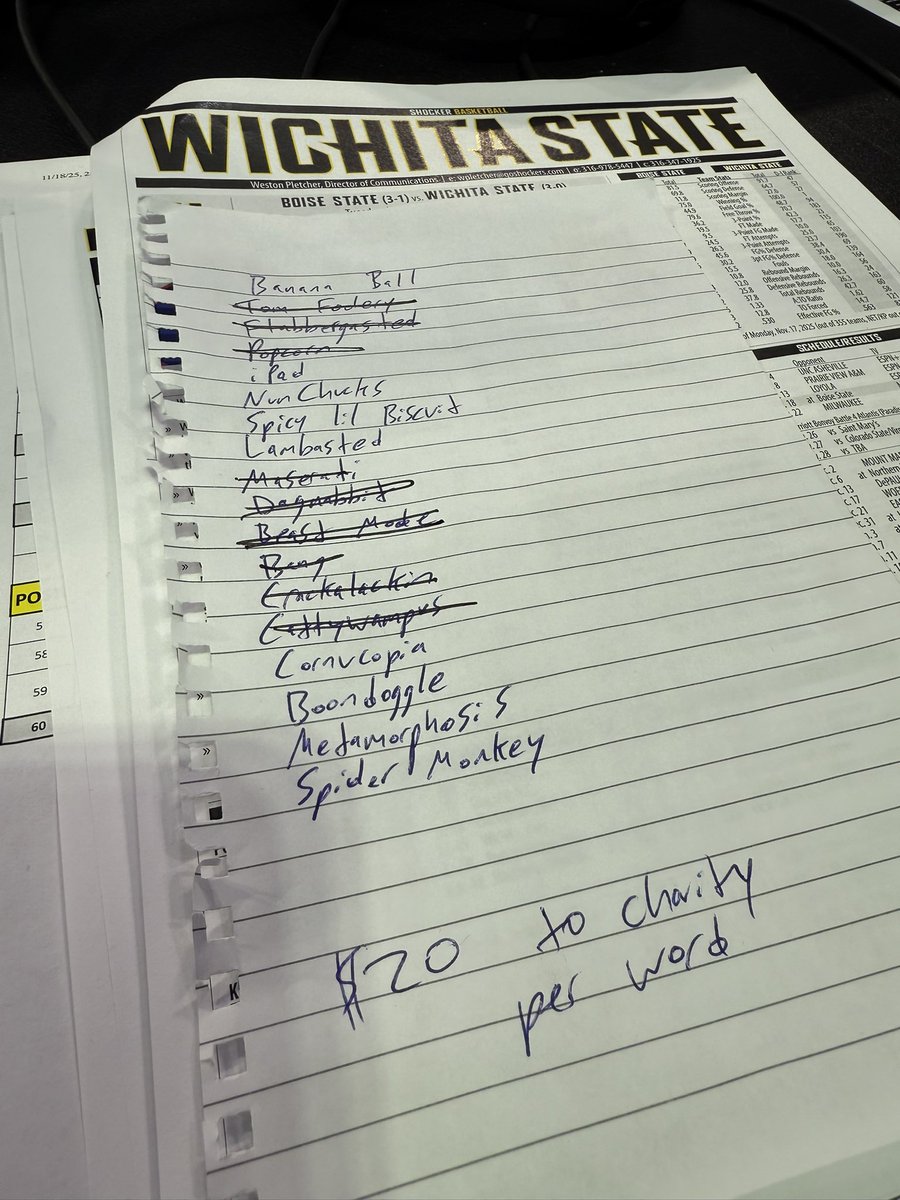 11/18/25, 2
SHOCKER BASKETBALL
WICHITA STATE
Weston Pletcher, Director of Communications | e: wpletcher@goshockers.com | o: 316-978-5447 | c: 316-347-1925
BOISE STATE (3-1) vs. WICHITA STATE (3-0)
BOISE STATE
WICHITA STATE
Team Stats
Scoring Offense
Scoring Defense
Scoring Margin
Winning %
Field Goal %
Free Throw %
3-Point %
FT Made
3-Point FG Made
FT Attempts
3-Point Attempts
FG% Defense
3pt FG% Defense
Fouls
Rebound Margin
Offensive Rebounds
Defensive Rebounds
Total Rebounds
A:TO Ratio
TO Forced
Effective FG %
of Monday, Nov. 17, 2025 (out of 355 teams, NET/KP out o
SCHEDULE/RESULTS
Opponent TV
UNC ASHEVILLE ESPN+
PRAIRIE VIEW A&M
LOYOLA
18 at Boise State
22 MILWAUKEE
26 vs Saint Mary's
27 vs Colorado State/
28 vs TBA
MOUNT MA
at Northern
DePAU
Banana Ball
Tom Fodery
Flabbergasted
Popcorn
iPad
Nun Chucks
Spicy lil Biscuit
Lambasted
Maserati
Dagnabbit
Beast Mode
Bang
Crackalackin
Cattywampus
Cornucopia
Boondoggle
Metamorphosis
Spider Monkey
$20 to charity
per word
PO
58
59
60
K